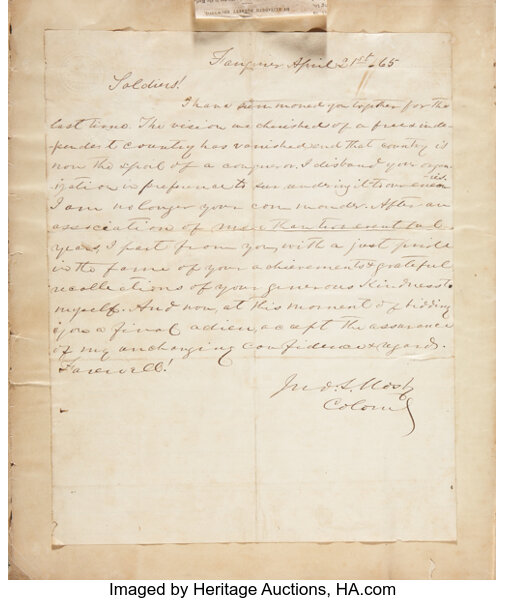 Fauquier April 21st /65
Soldiers!
I have summoned you together for the
last time. The vision we cherished of a free & inde-
pendent country has vanished and that country is
now the spoil of a conqueror. I disband your organ-
ization in preference to surrendering it to our enem
ies.
I am no longer your commander. After an
association of more than two eventful
years, I part from you, with a just pride
in the fame of your achievements & grateful
recollections of your generous kindness to
myself. And now, at this moment of bidding
you a final adieu, accept the assurance
of my unchanging confidence & regard.
Farewell!
Jno. S. Mosby
Colonel
Imaged by Heritage Auctions, HA.com